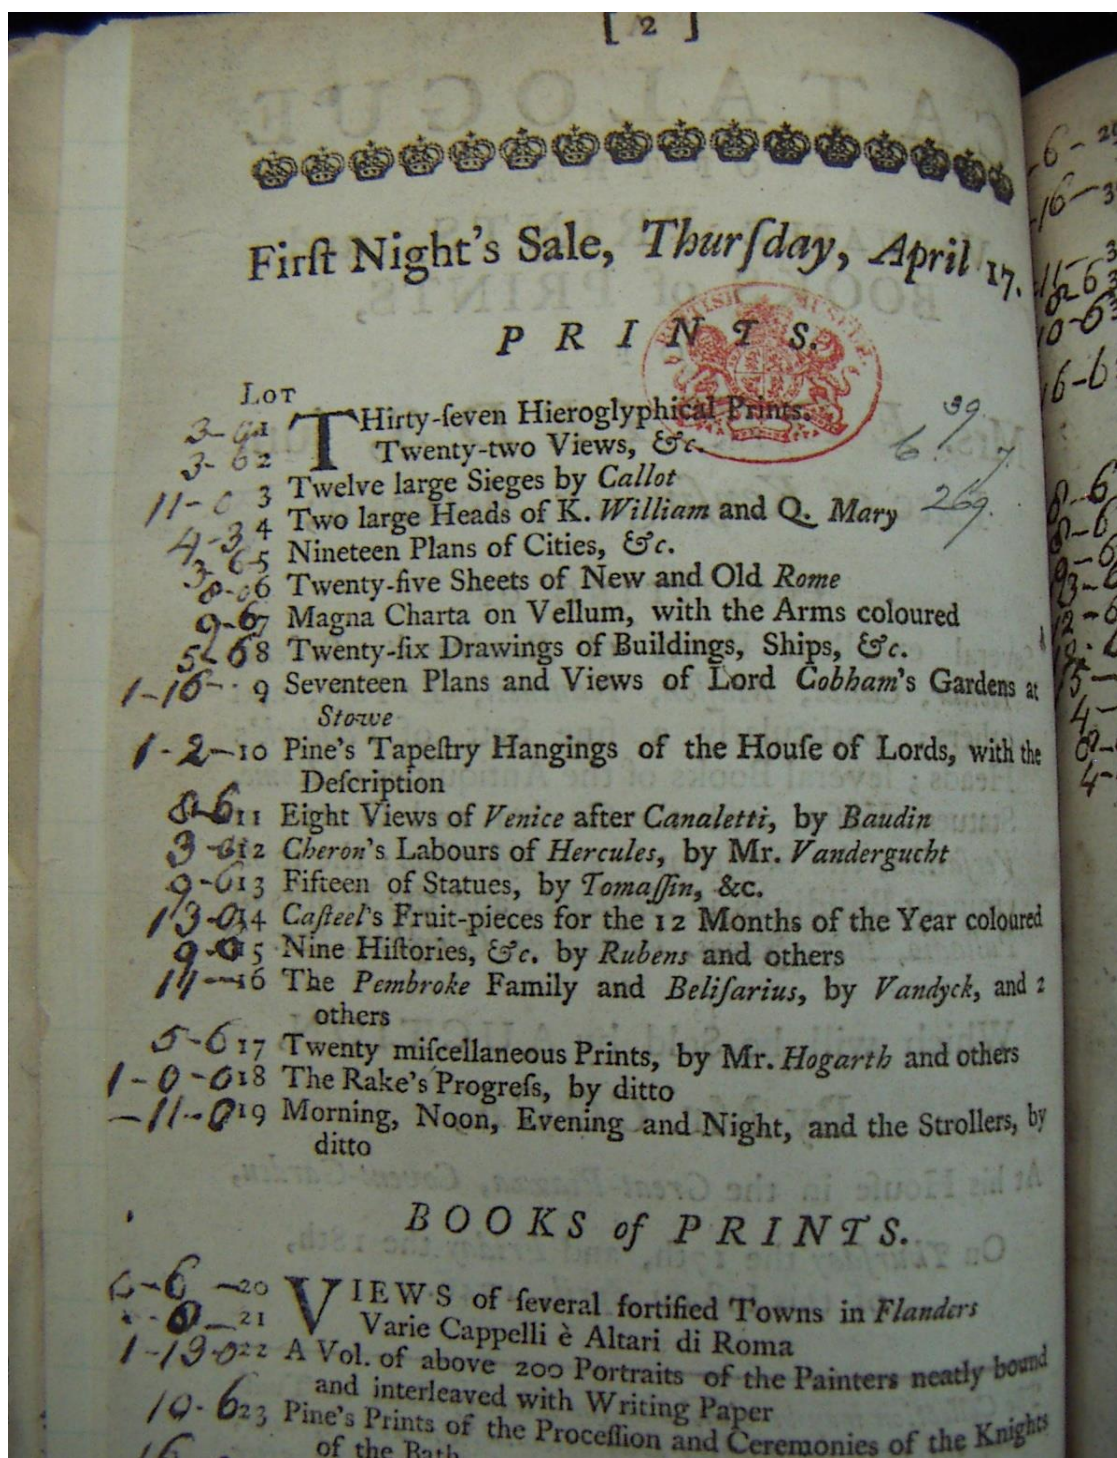 [ 2 ]
Firſt Night's Sale, Thurſday, April 17.
PRINTS.
BRITISH MUSEUM
LOT
1 THirty-ſeven Hieroglyphical Prints.
3-6 2 Twenty-two Views, &c.
39
6 7
11-0 3 Twelve large Sieges by Callot
4-3 4 Two large Heads of K. William and Q. Mary
269.
3 6 5 Nineteen Plans of Cities, &c.
8-06 Twenty-five Sheets of New and Old Rome
9-6 7 Magna Charta on Vellum, with the Arms coloured
5-6 8 Twenty-ſix Drawings of Buildings, Ships, &c.
1-16- 9 Seventeen Plans and Views of Lord Cobham's Gardens at
Stowe
1-2-10 Pine's Tapeſtry Hangings of the Houſe of Lords, with the
Deſcription
8-6 11 Eight Views of Venice after Canaletti, by Baudin
3-0 12 Cheron's Labours of Hercules, by Mr. Vandergucht
9-6 13 Fifteen of Statues, by Tomaſſin, &c.
13-0 14 Caſteel's Fruit-pieces for the 12 Months of the Year coloured
9-0 15 Nine Hiſtories, &c. by Rubens and others
16 The Pembroke Family and Beliſarius, by Vandyck, and 2
others
5-6 17 Twenty miſcellaneous Prints, by Mr. Hogarth and others
1-0-0 18 The Rake's Progreſs, by ditto
-11-0 19 Morning, Noon, Evening and Night, and the Strollers, by
ditto
BOOKS of PRINTS.
20 VIEWS of ſeveral fortified Towns in Flanders
21 Varie Cappelli è Altari di Roma
1-13-0 22 A Vol. of above 200 Portraits of the Painters neatly bound
and interleaved with Writing Paper
10-6 23 Pine's Prints of the Proceſſion and Ceremonies of the Knights
of the Bath